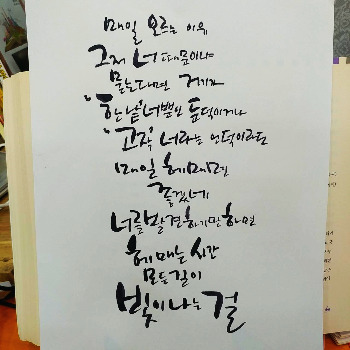 매일 오르는 이유
그저 너 때문이냐
묻는다면 거기가
"한낱" 너뿐인 둔덕이거나
"고작" 너라는 언덕이라도
매일 헤매면
좋겠네
너를 발견하기만 하면
헤매는 시간
모든 길이
빛이 나는 걸